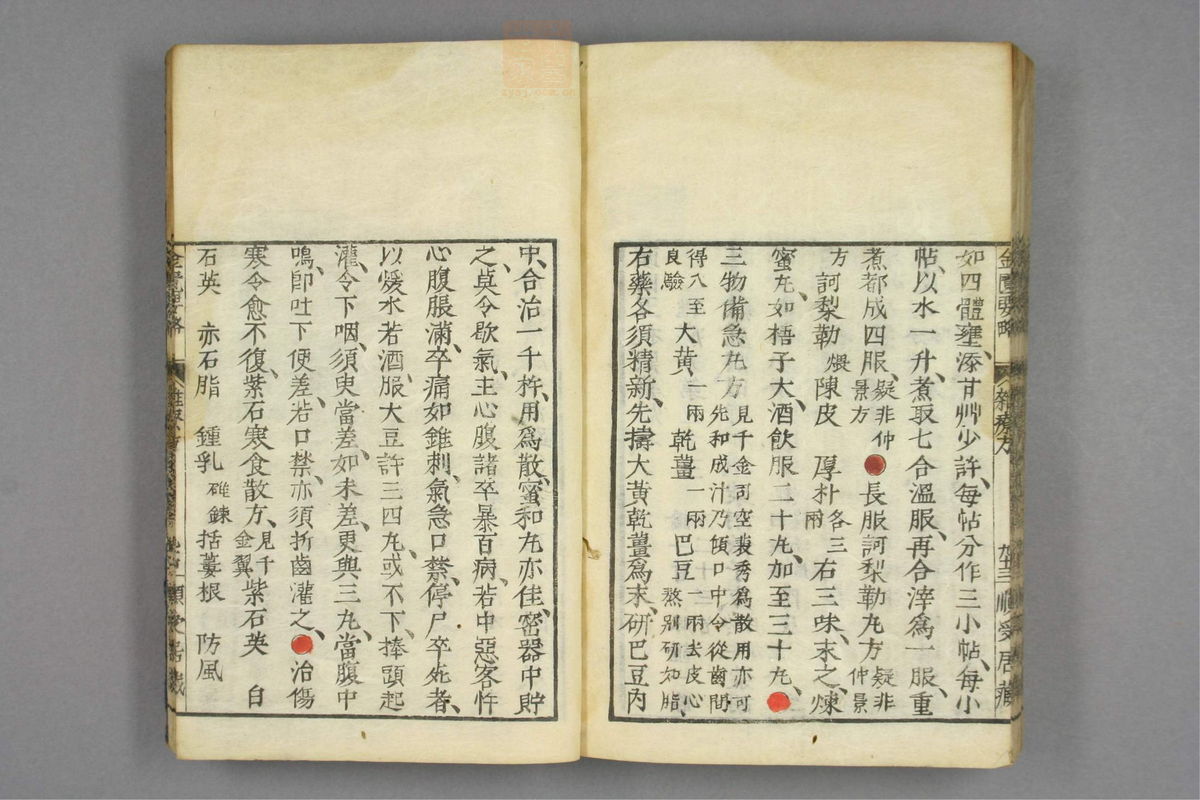 如四體壅、添甘艸少許、每帖分作三小帖、每小
帖、以水一升、煮取七合溫服、再合滓爲一服、重
煮都成四服、疑非仲景方 長服訶梨勒丸方疑非仲景
方 訶梨勒煨 陳皮 厚朴各三兩 右三味、末之、煉
蜜丸、如梧子大、酒飲服二十丸、加至三十丸、
三物備急丸方見千金司空裴秀爲散用亦可先和成汁乃傾口中令從齒間
得入至良驗 大黃一兩 乾薑一兩 巴豆一兩去皮心熬別研如脂、
右藥各須精新、先擣大黃乾薑爲末、研巴豆內
中、合治一千杵、用爲散、蜜和丸亦佳、密器中貯
之、莫令歇氣、主心腹諸卒暴百病、若中惡客忤
心腹脹滿、卒痛如錐刺、氣急口禁、停尸卒死者、
以煖水若酒服大豆許三四丸、或不下、捧頭起
灌、令下咽、須臾當差、如未差、更與三丸、當腹中
鳴、卽吐下便差、若口禁、亦須折齒灌之、治傷
寒令愈不復、紫石寒食散方、見千金翼 紫石英 白
石英 赤石脂 鍾乳碓鍊 括蔞根 防風
金匱要略
雜療方